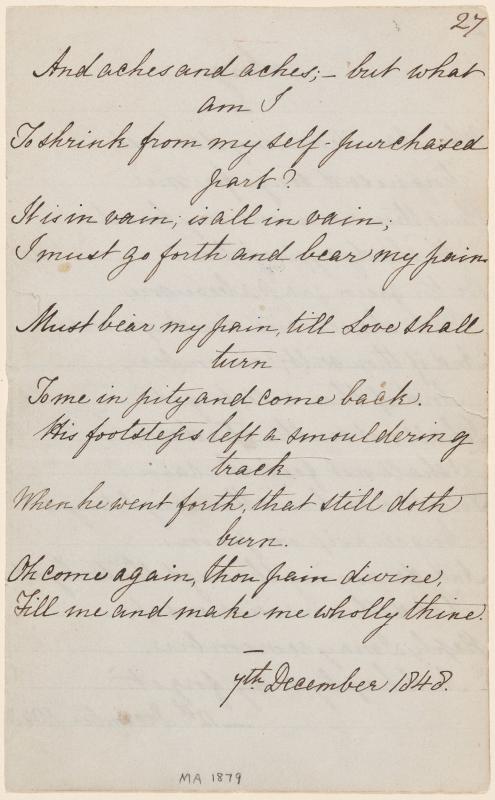 27
And aches and aches;– but what
am I
To shrink from my self-purchased
part?
It is in vain, is all in vain;
I must go forth and bear my pain.
Must bear my pain, till Love shall
turn
To me in pity and come back.
His footsteps left a smouldering
track
When he went forth, that still doth
burn.
Oh come again, thou pain divine,
Fill me and make me wholly thine.
7th December 1848.
MA 1879